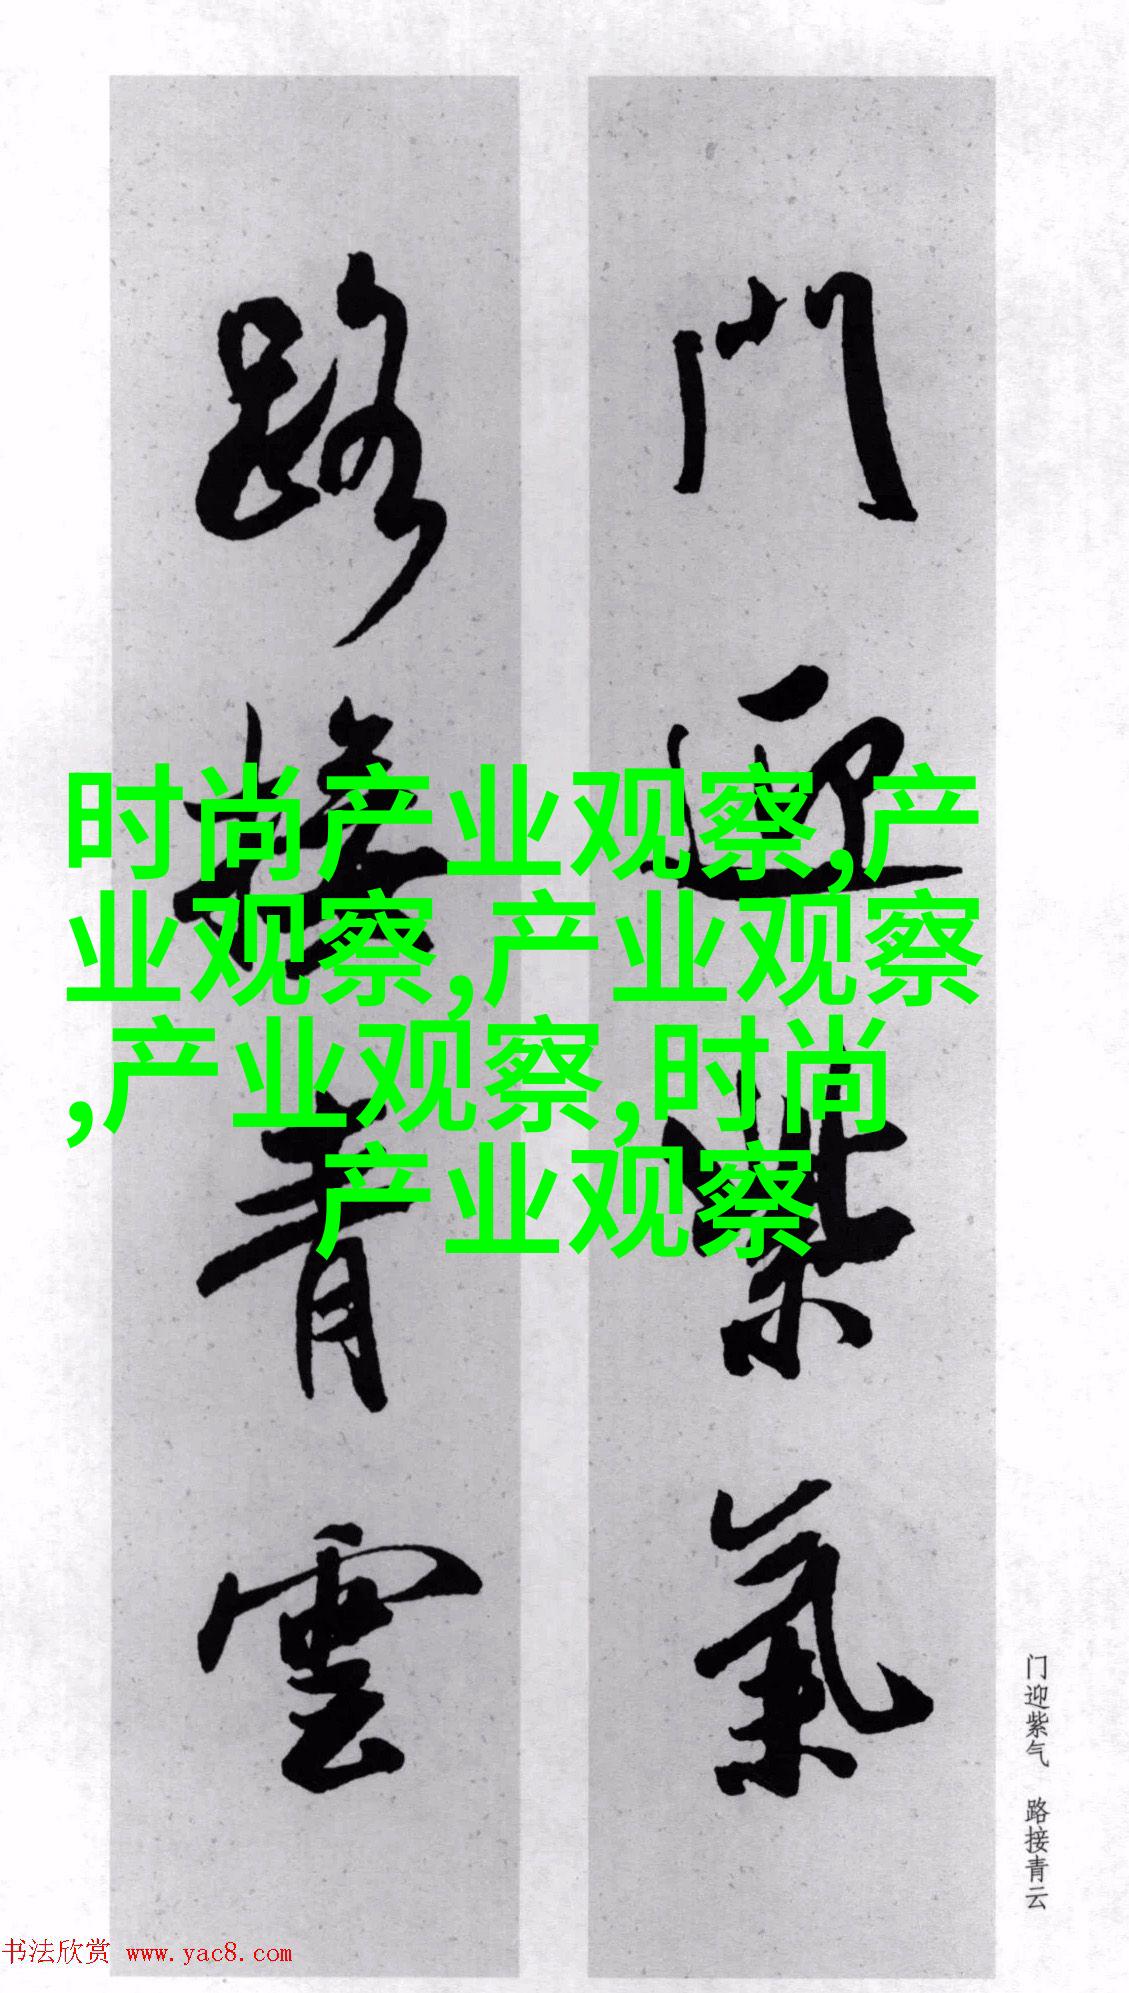 門迎紫氣
路接青雲
时尚产业观察,产
业观察,产业观察
,产业观察,时尚
产业观察
门迎紫气 路接青云
书法欣赏 www.yac8.com